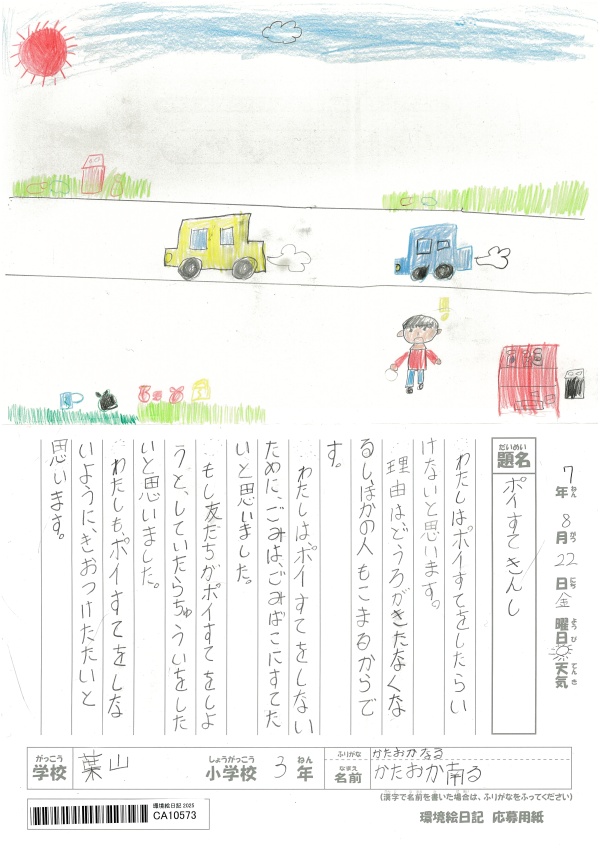 7年 8月 22日 金曜日 天気
ねん がつ にち ようび てんき
だいめい
題名
ポイすてきんし
わたしはポイすてをしたらい
けないと思います。
理由は、どうろがきたなくな
るし、ほかの人もこまるからで
す。
わたしは、ポイすてをしない
ために、ごみは、ごみばこにすてた
いと思いました。
もし友だちがポイすてをしよ
うと、していたらちゅういをした
いと思いました。
わたしもポイすてをしな
いように、きおつけたたいと
思います。
がっこう しょうがっこう ねん
学校 葉山 小学校 3年
ふりがな かたおかなる
なまえ
名前 かたおか南る
(漢字で名前を書いた場合は、ふりがなをふってください)
環境絵日記 2025
CA10573
環境絵日記 応募用紙